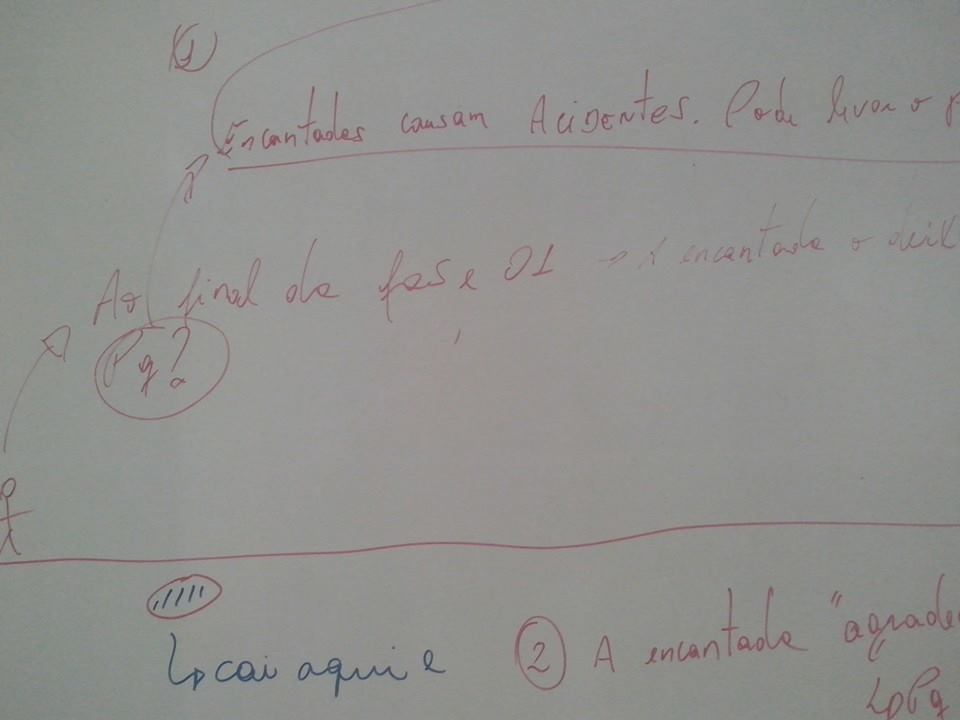 1
Encantades causam Acidentes. Pode levar o
Ao final da fase 01 → A encantada o deix
Pq?
↳ cai aqui e
2 A encantada "agrade
↳ Pq